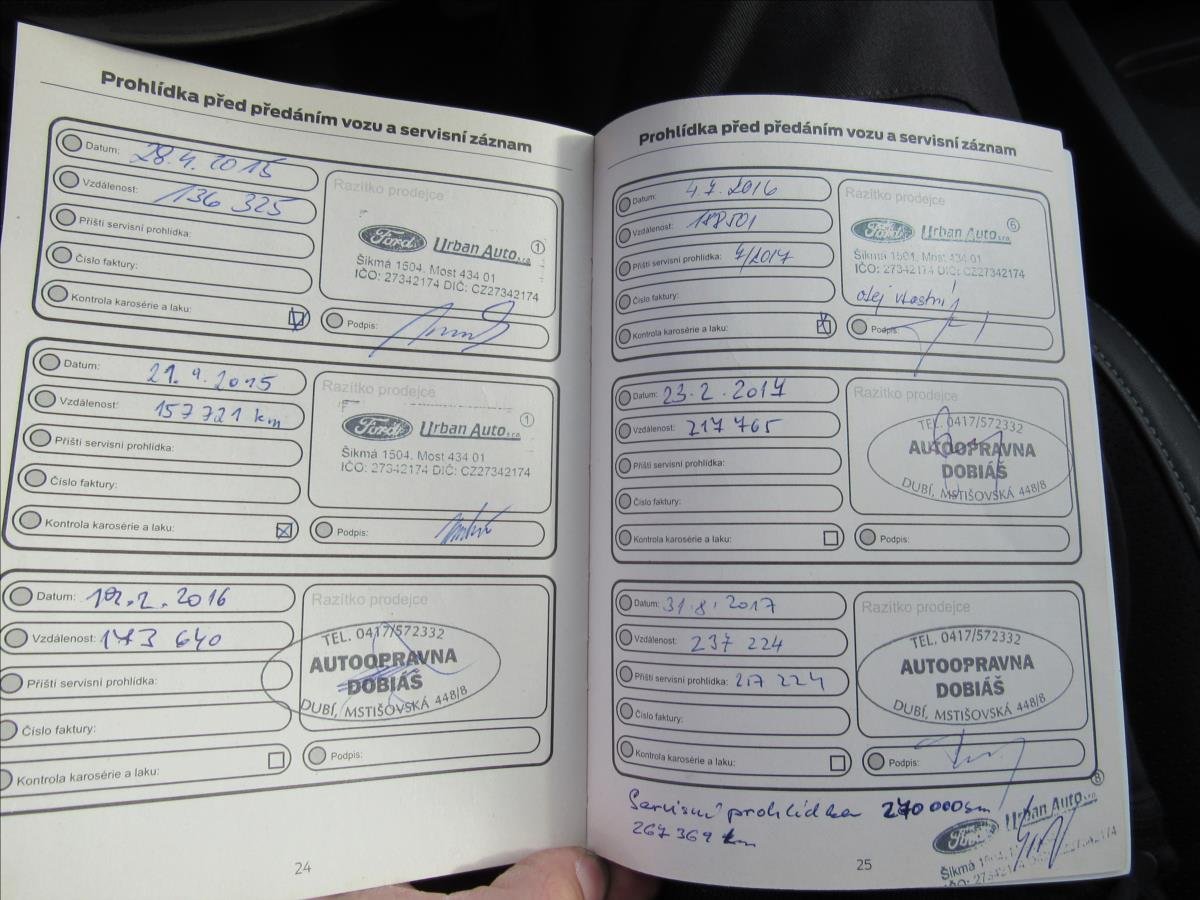 Prohlídka před předáním vozu a servisní záznam
Datum: 28.4. 2015
Vzdálenost: 136 325
Příští servisní prohlídka:
Číslo faktury:
Kontrola karosérie a laku:
Razítko prodejce
Ford Urban Auto s.r.o. 1
Šikmá 1504, Most 434 01
IČO: 27342174 DIČ: CZ27342174
Podpis:
Datum: 21.9.2015
Vzdálenost: 157 721 km
Příští servisní prohlídka:
Číslo faktury:
Kontrola karosérie a laku:
Razítko prodejce
Ford Urban Auto s.r.o. 1
Šikmá 1504, Most 434 01
IČO: 27342174 DIČ: CZ27342174
Podpis:
Datum: 2. 2016
Vzdálenost: 173 640
Příští servisní prohlídka:
Číslo faktury:
Kontrola karosérie a laku:
Razítko prodejce
TEL. 0417/572332
AUTOOPRAVNA
DOBIÁŠ
DUBÍ, MSTIŠOVSKÁ 448/8
Podpis:
24
Prohlídka před předáním vozu a servisní záznam
Datum: 4.7.2016
Vzdálenost: 188501
Příští servisní prohlídka: 7/2017
Číslo faktury:
Kontrola karosérie a laku:
Razítko prodejce
Ford Urban Auto s.r.o. 6
Šikmá 1504, Most 434 01
IČO: 27342174 DIČ: CZ27342174
olej vlastní
Podpis:
Datum: 23.2.2017
Vzdálenost: 217 765
Příští servisní prohlídka:
Číslo faktury:
Kontrola karosérie a laku:
Razítko prodejce
TEL. 0417/572332
AUTOOPRAVNA
DOBIÁŠ
DUBÍ, MSTIŠOVSKÁ 448/8
Podpis:
Datum: 31.8.2017
Vzdálenost: 237 224
Příští servisní prohlídka: 257 224
Číslo faktury:
Kontrola karosérie a laku:
Razítko prodejce
TEL. 0417/572332
AUTOOPRAVNA
DOBIÁŠ
DUBÍ, MSTIŠOVSKÁ 448/8
Podpis:
Servisní prohlídka 270 000 km
267 369 km
Ford Urban Auto s.r.o. 8
Šikmá 1504,
25